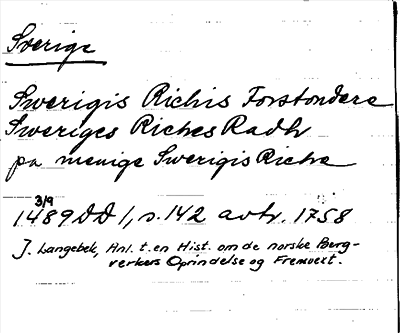 Sverige
Swerigis Richis Forstondere
Sweriges Riches Radh
pa menige Swerigis Riche
3/9
1489 DD 1, s. 142 avtr. 1758
J. Langebek, Anl. t. en Hist. om de norske Berg-
verkers Oprindelse og Fremvext.